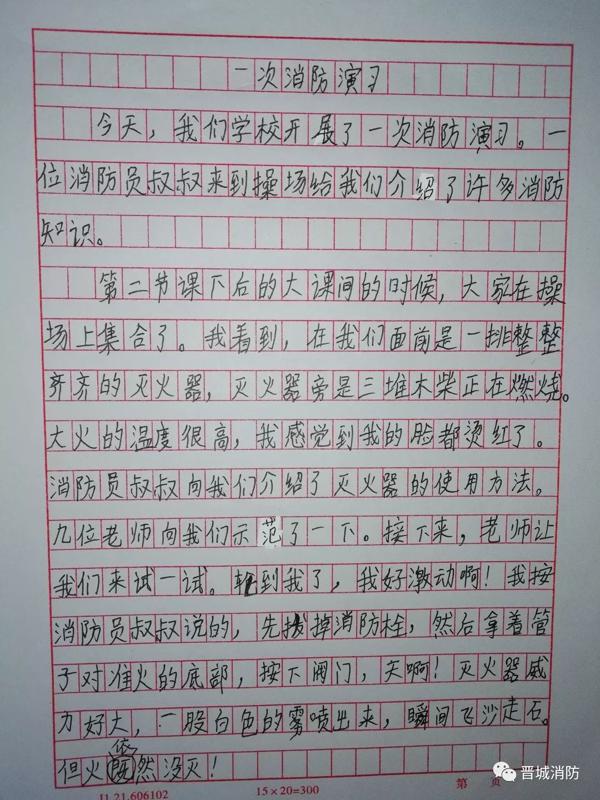 一次消防演习
今天，我们学校开展了一次消防演习。一
位消防员叔叔来到操场给我们介绍了许多消防
知识。
第二节课下后的大课间的时候，大家在操
场上集合了。我看到，在我们面前是一排整整
齐齐的灭火器，灭火器旁是三堆木柴正在燃烧。
大火的温度很高，我感觉到我的脸都烫红了。
消防员叔叔向我们介绍了灭火器的使用方法。
几位老师向我们示范了一下。接下来，老师让
我们来试一试。轮到我了，我好激动啊！我按
消防员叔叔说的，先拔掉消防栓，然后拿着管
子对准火的底部，按下阀门，天啊！灭火器威
力好大，一股白色的雾喷出来，瞬间飞沙走石。
但火依然没灭！
11.21.606102 15×20=300 第 页
晋城消防